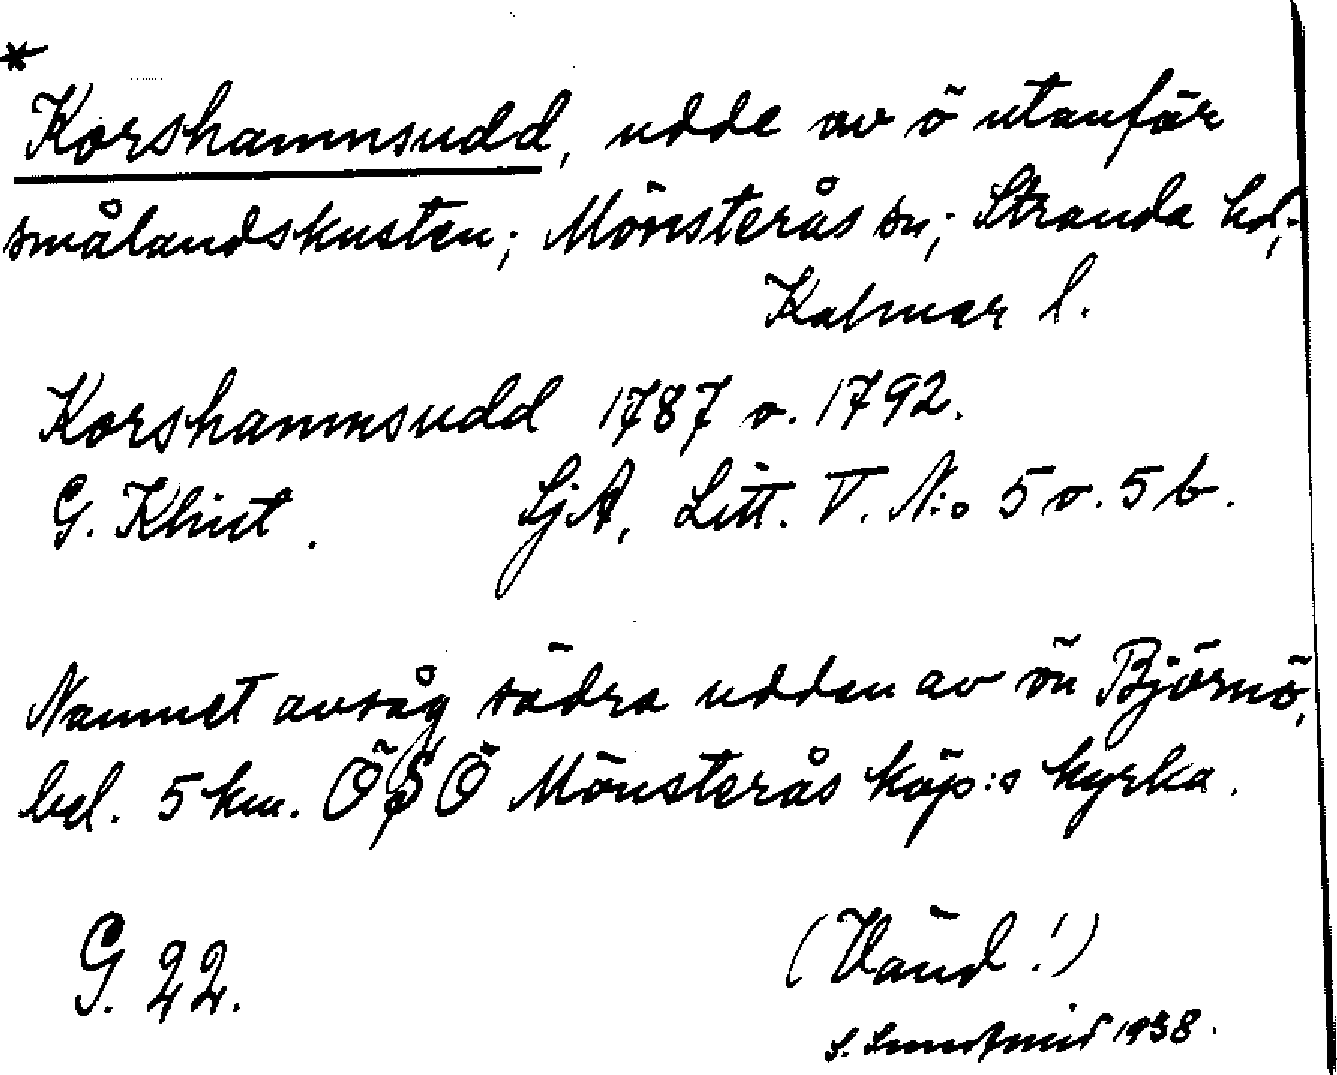 *
Korshamnsudd, udde av ö utanför
smålandskusten; Mönsterås sn; Stranda hd;
Kalmar l.
Korshamnsudd 1787 o. 1792.
G. Klint. SjA, Litt. V. N:o 5 o. 5 b.
Namnet avsåg södra udden av ön Björnö,
bel. 5 km. ÖSÖ Mönsterås köp:s kyrka.
G. 22. (Vänd!)
S. 1938.